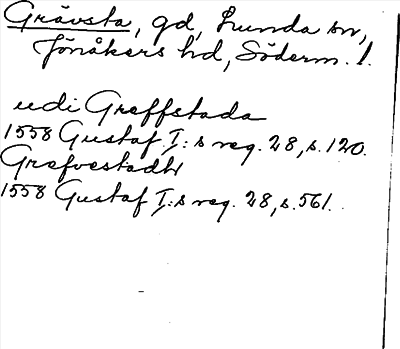 Grävsta, gd, Lunda sn,
Jönåkers hd, Söderm. l.
udi Greffstada
1558 Gustaf I:s reg. 28, s. 120.
Grefvestadh
1558 Gustaf I:s reg. 28, s. 561.